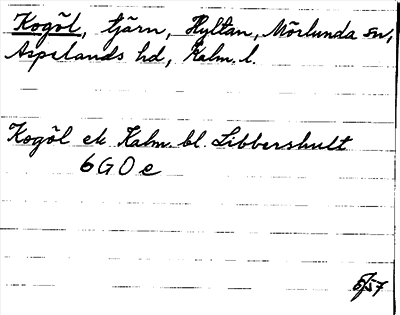 Kogöl, tjärn, Hyltan, Mörlunda sn,
Aspelands hd, Kalm. l.
Kogöl ek Kalm. bl. Libbershult
6 G 0 e
6/57